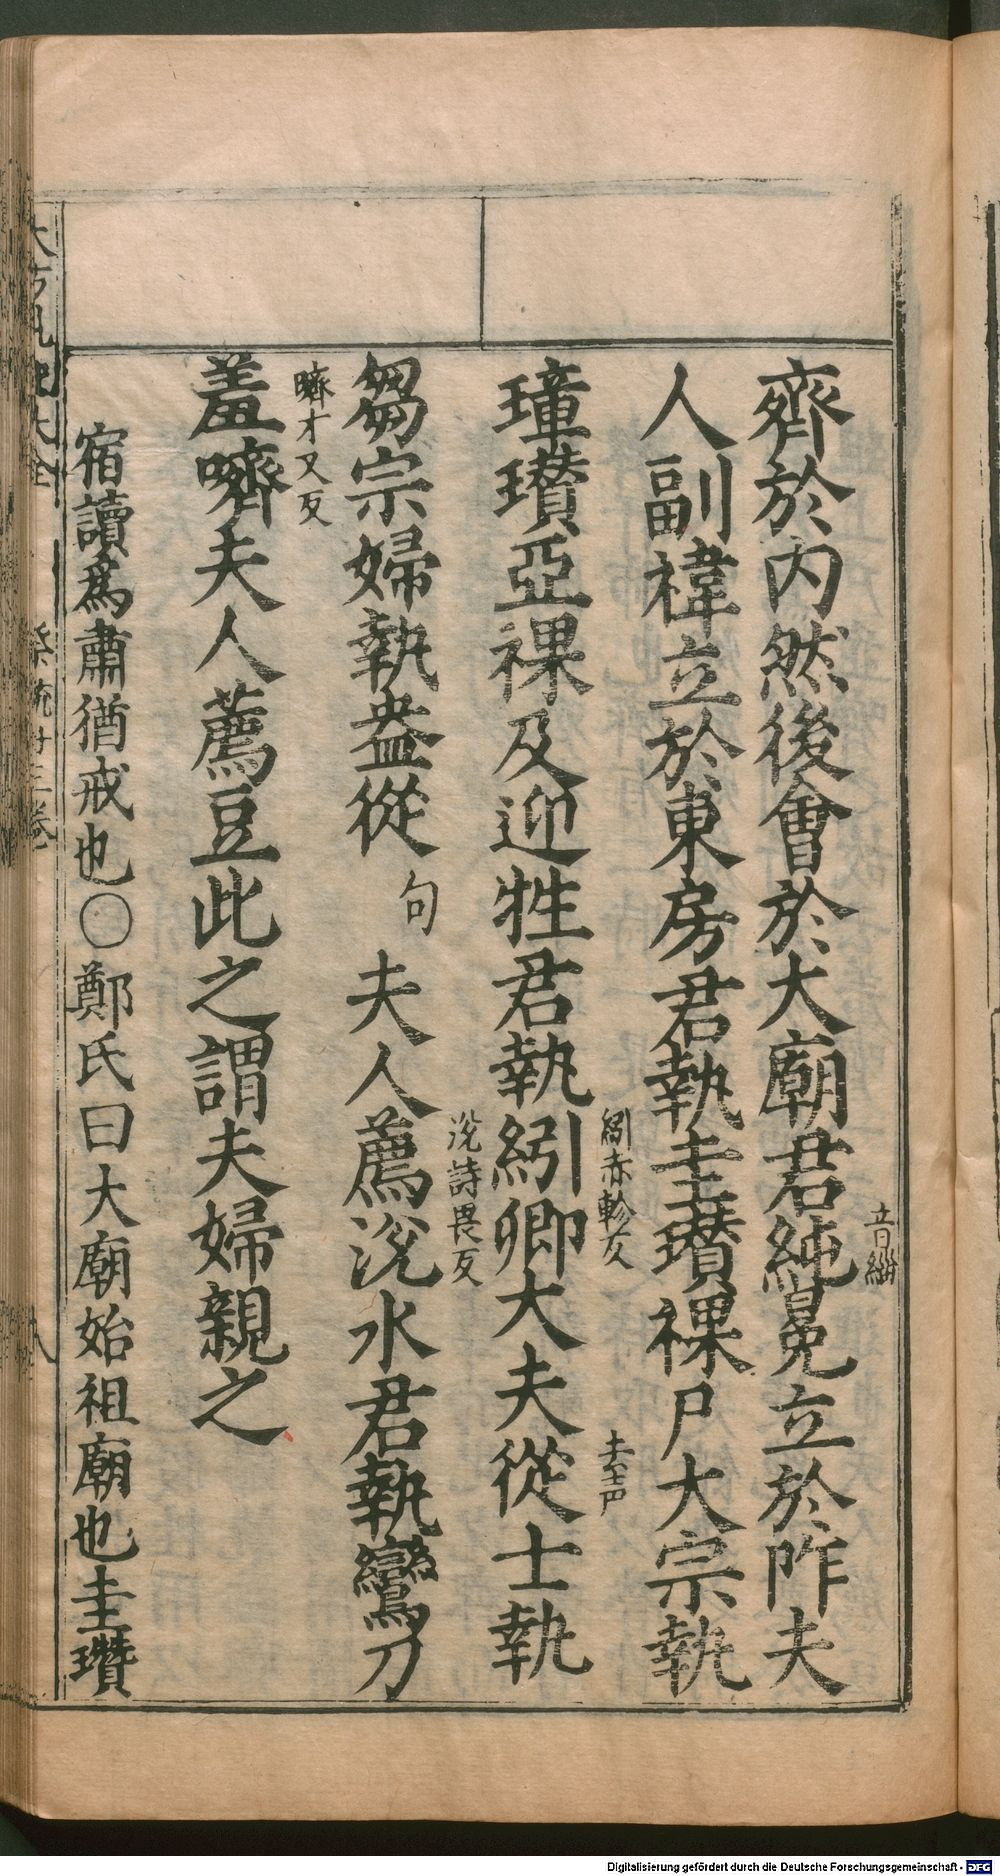 齊於内然後會於大廟君純冕立於阼夫
音緇
人副褘立於東房君執圭瓚祼尸大宗執
璋瓚亞祼及迎牲君執紖卿大夫從士執
紖赤軫反
去聲
芻宗婦執盎從句夫人薦涗水君執鸞刀
涗詩畏反
羞嚌夫人薦豆此之謂夫婦親之
嚌才又反
宿讀爲肅猶戒也〇鄭氏曰大廟始祖廟也圭瓚
祭統廿三卷 八
Digitalisierung gefördert durch die Deutsche Forschungsgemeinschaft - DFG